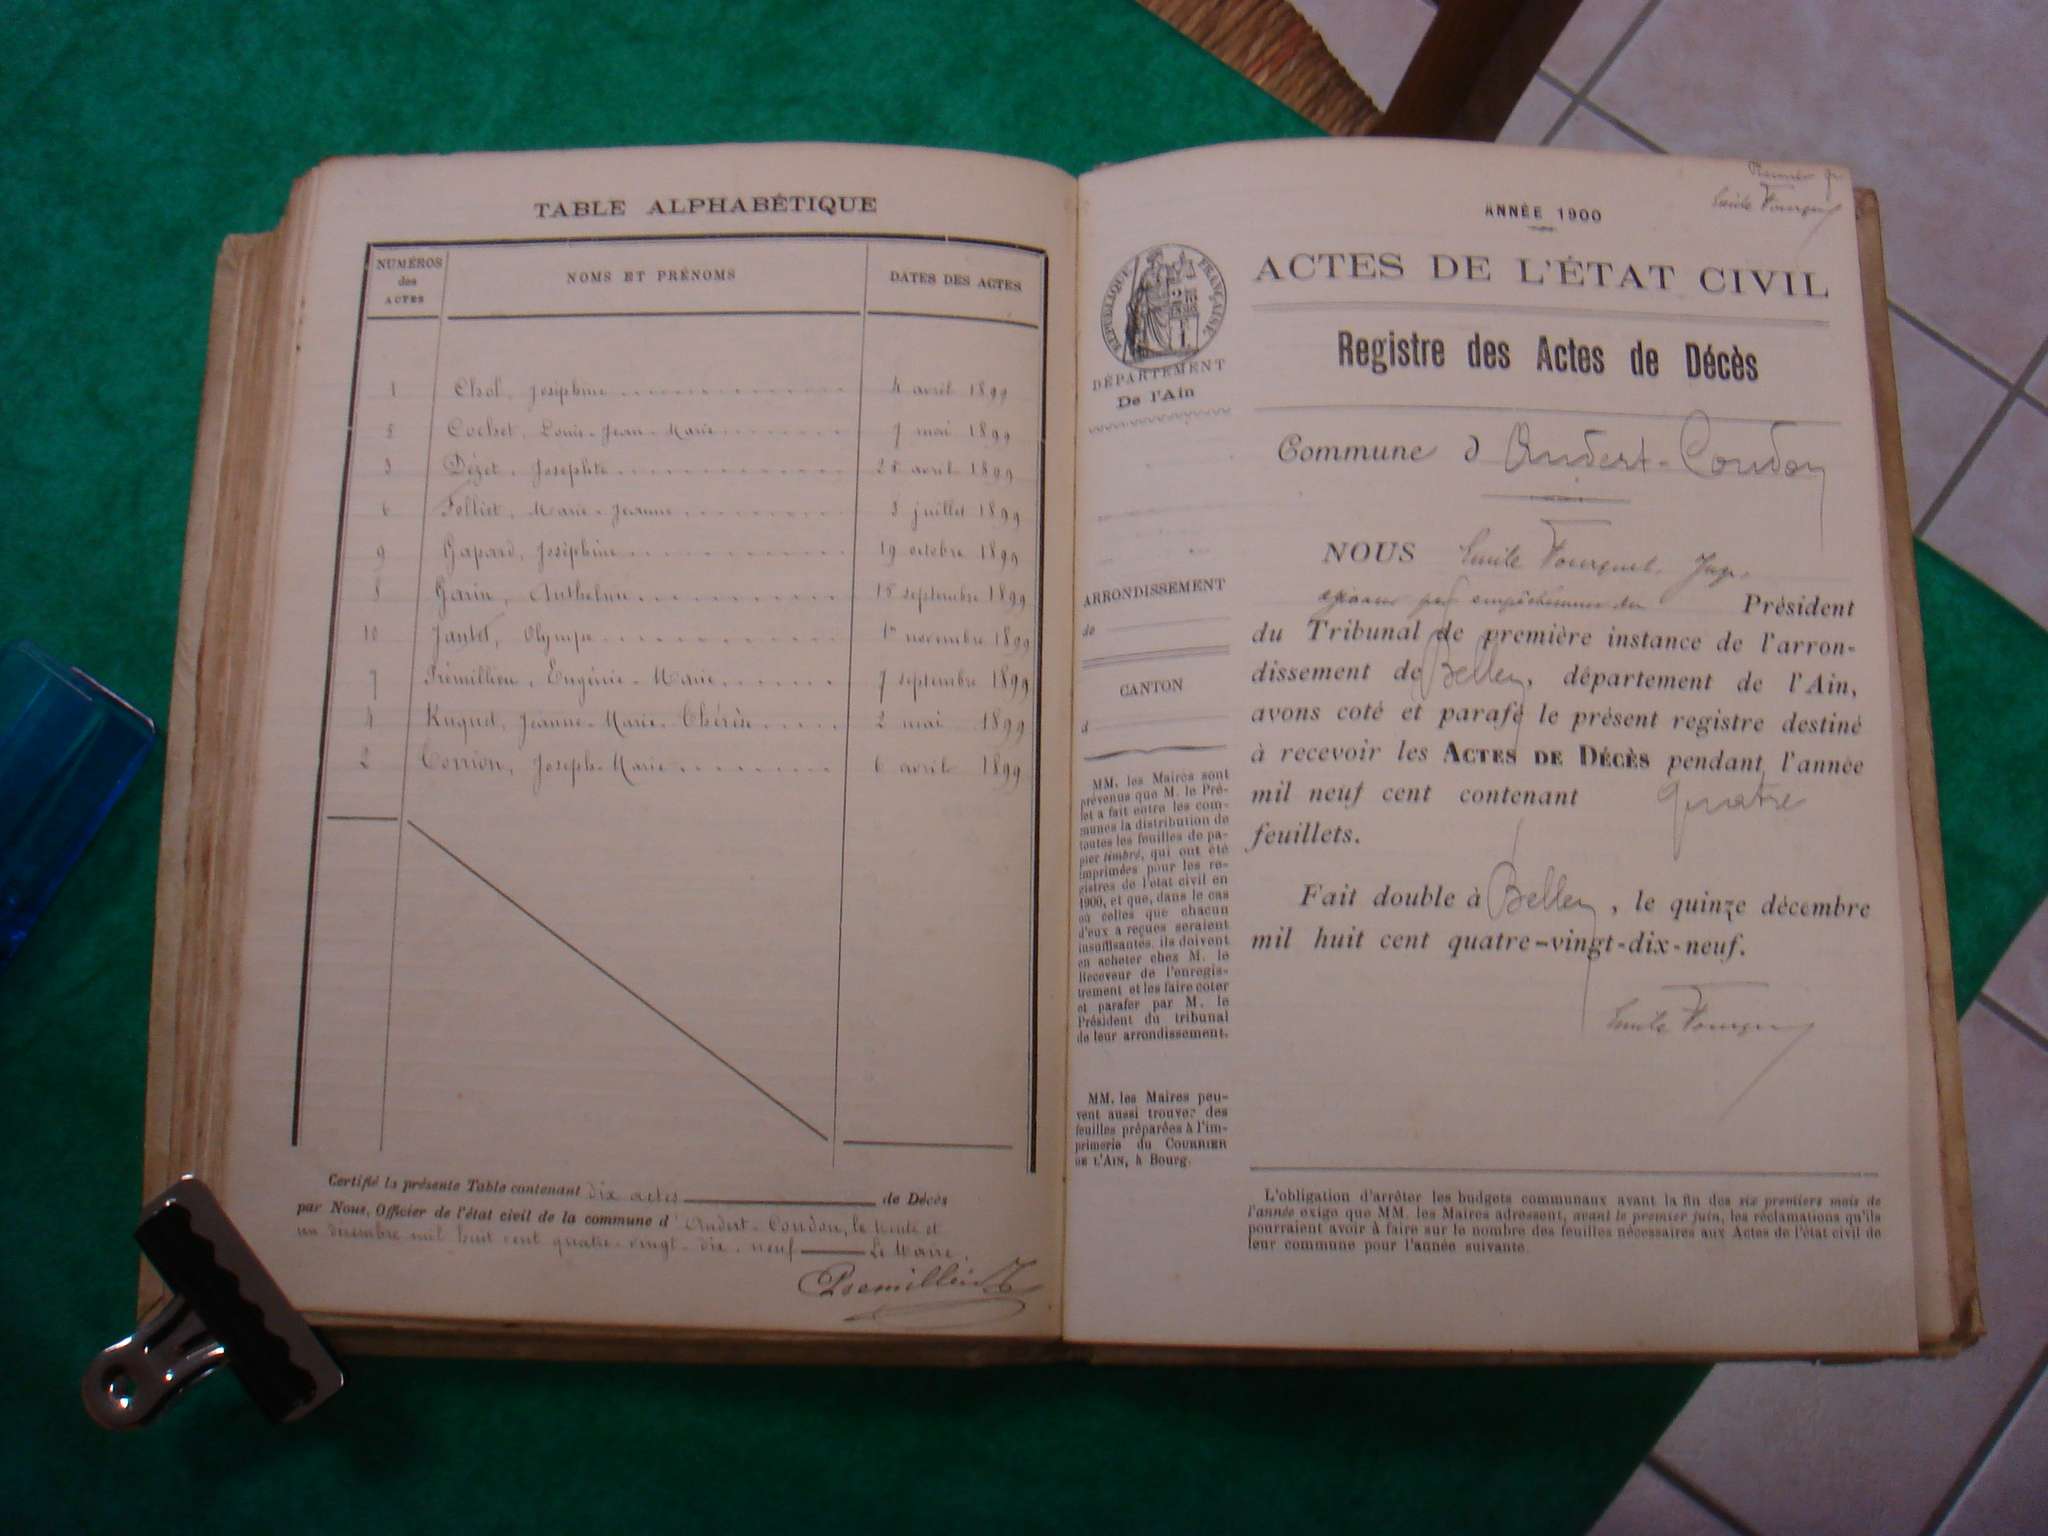 TABLE ALPHABÉTIQUE
NUMÉROS des ACTES
NOMS ET PRÉNOMS
DATES DES ACTES
1 Chol, Joséphine 4 avril 1899
5 Cochet, Louis-Jean-Marie 7 mai 1899
3 Dézet, Josephte 25 avril 1899
6 Folliet, Marie-Jeanne 3 juillet 1899
9 Gapard, Joséphine 19 octobre 1899
8 Garin, Anthelme 15 septembre 1899
10 Jantet, Olympe 1er novembre 1899
7 Prémillieu, Eugénie-Marie 7 septembre 1899
4 Ruguet, Jeanne-Marie-Thérèse 2 mai 1899
2 Torrion, Joseph-Marie 6 avril 1899
Certifié la présente Table contenant dix actes de Décès
par Nous, Officier de l'état civil de la commune d'Andert-Condon, le trente et
un décembre mil huit cent quatre-vingt-dix-neuf Le Maire,
Premillieu
Premier
Emile Fourquet
ANNÉE 1900
ACTES DE L'ÉTAT CIVIL
RÉPUBLIQUE FRANÇAISE
DÉPARTEMENT
De l'Ain
Registre des Actes de Décès
Commune d Andert-Condon
ARRONDISSEMENT
de
CANTON
d
MM. les Maires sont
prévenus que M. le Pré-
fet a fait entre les com-
munes la distribution de
toutes les feuilles de pa-
pier timbré, qui ont été
imprimées pour les re-
gistres de l'état civil en
1900, et que, dans le cas
où celles que chacun
d'eux a reçues seraient
insuffisantes, ils doivent
en acheter chez M. le
Receveur de l'enregis-
trement et les faire coter
et parafer par M. le
Président du tribunal
de leur arrondissement.
MM. les Maires peu-
vent aussi trouver des
feuilles préparées à l'im-
primerie du COURRIER
DE L'AIN, à Bourg.
NOUS Emile Fourquet, Juge
par empêchement du Président
du Tribunal de première instance de l'arron-
dissement de Belley, département de l'Ain,
avons coté et parafé le présent registre destiné
à recevoir les ACTES DE DÉCÈS pendant l'année
mil neuf cent contenant quatre
feuillets.
Fait double à Belley, le quinze décembre
mil huit cent quatre-vingt-dix-neuf.
Emile Fourquet
L'obligation d'arrêter les budgets communaux avant la fin des six premiers mois de
l'année exige que MM. les Maires adressent, avant le premier juin, les réclamations qu'ils
pourraient avoir à faire sur le nombre des feuilles nécessaires aux Actes de l'état civil de
leur commune pour l'année suivante.